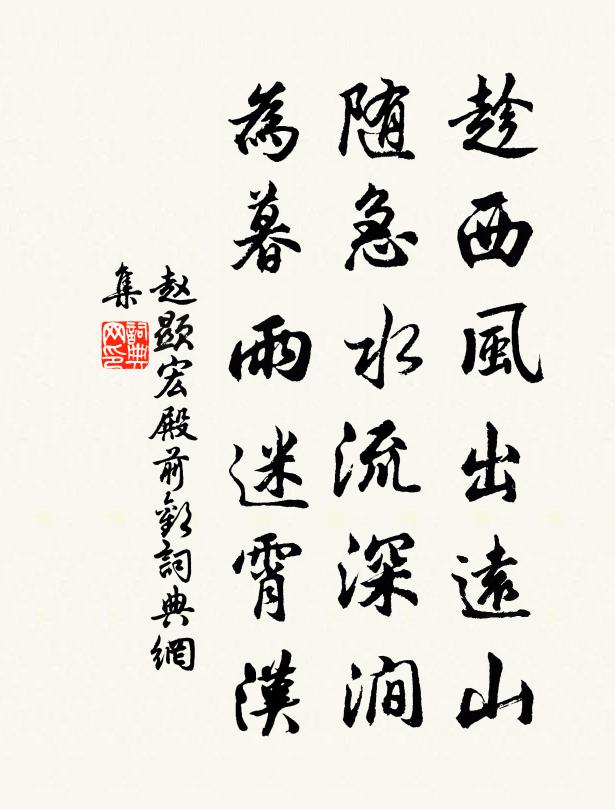 趁西風出遠山
随急水流深涧
為暮雨迷霄漢
赵顯宏殿前歡詞典網
集
詞典
网印